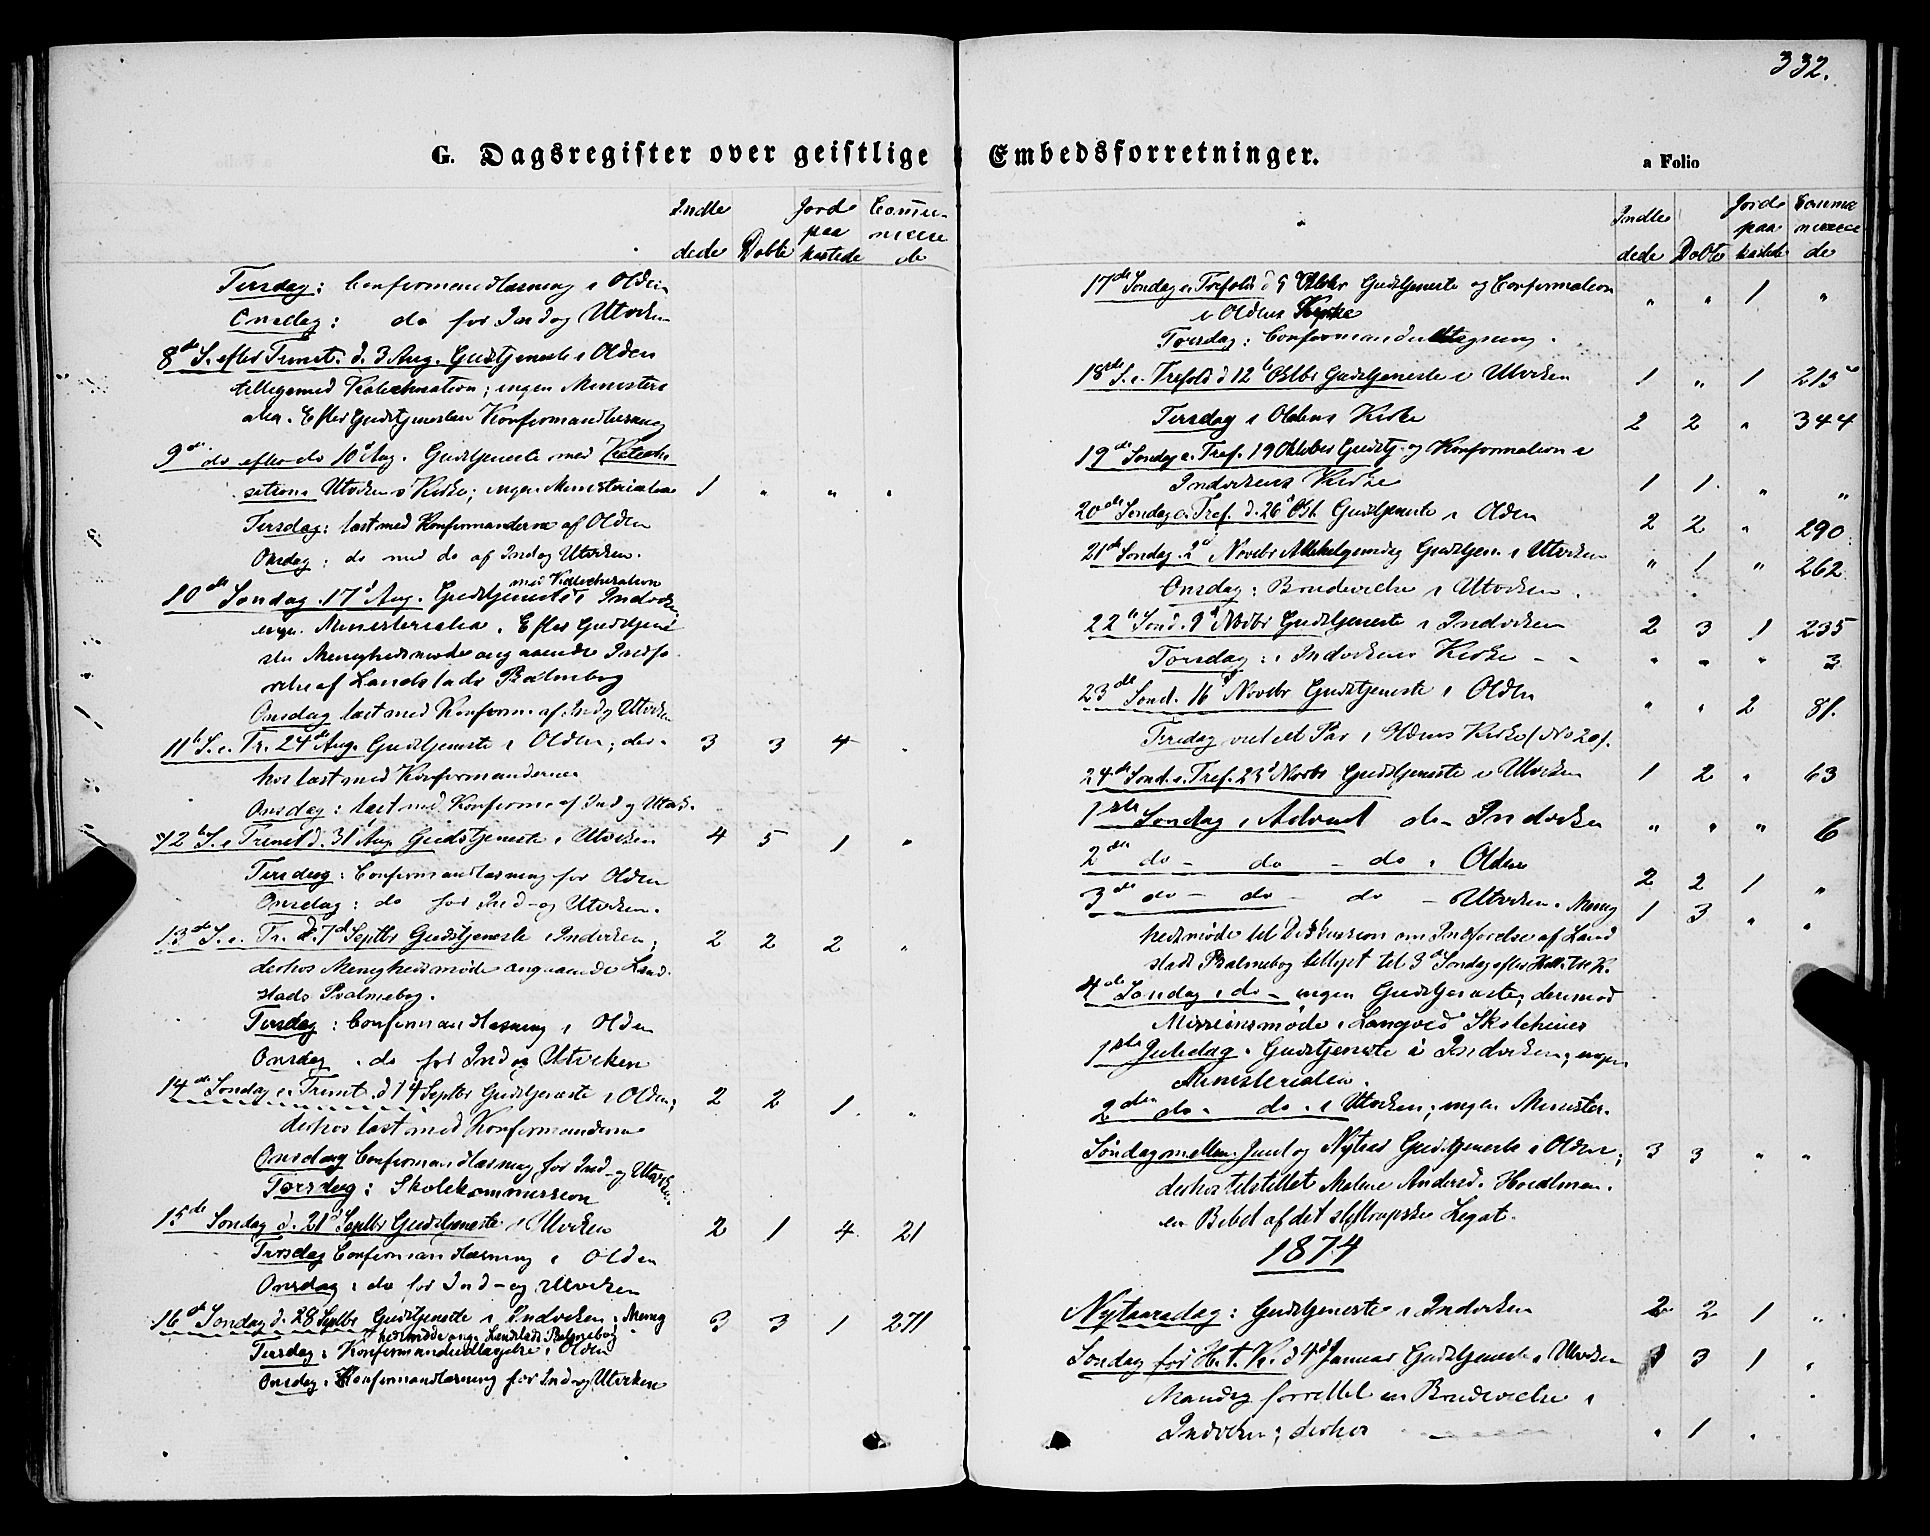 332.
G. Dagsregister over geistlige
Indle
dede
Døbte
Jord
paa
kastede
Commu-
nicere
de
Tirsdag: Confirmandlæsning i Olden
Onsdag: do for Ind og Utviken
8de S. efter Trinit. d. 3 Aug. Gudstjeneste i Olden
tilligemed Katechisation; ingen Ministeri
alia. Efter Gudstjenesten Konfirmandlæsning
9de do efter do 10d Aug. Gudstjeneste med Kateche
sation i Utvikens Kirke; ingen Ministerialia 1 " " "
Tirsdag: læst med Konfirmanderne af Olden
Onsdag: do med do af Ind og Utviken.
med Katechisation
10de Søndag 17d Aug. Gudstjeneste i Indviken
ingen Ministerialia. Efter Gudstjene
sten Menighedsmøde angaaende Indfø
relse af Landstads Psalmebog
Onsdag læst med Konfirm. af Ind og Utviken
11te S. e. Tr. 24de Aug. Gudstjeneste i Olden; der- 3 3 4 "
hos læst med Konfirmanderne
Onsdag: læst med Konfirm. af Ind og Utvik.
12te S. e. Trinit d. 31 Aug. Gudstjeneste i Utviken 4 5 1 "
Tirsdag: Confirmandlæsning for Olden
Onsdag: do for Ind- og Utviken.
13de S. e. Tr. d. 7de Septbr Gudstjeneste i Indviken; 2 2 2 "
derhos Menighedsmøde angaaende Land-
stads Psalmebog.
Tirsdag: Confirmandlæsning i Olden
Onsdag. do for Ind og Utviken
14de Søndag e. Trinit. d 14 Septbr Gudstjeneste i Olden; 2 2 1. "
derhos læst med Konfirmanderne
Onsdag Confirmandlæsning for Ind- og Utviken.
Torsdag: Skolekommission
15de Søndag d. 21d Septbr Gudstjeneste i Utviken 2 1 4 21
Tirsdag Confirmandlæsning i Olden
Onsdag: do for Ind- og Utviken
16de Søndag d. 28 Septbr Gudstjeneste i Indviken; Menig 3 3 1 271
hedsmøde ang. Landstads Psalmebog
Tirsdag: Konfirmandudtagelse i Olden
Onsdag: Konfirmandlæsning for Ind og Utviken
Embedsforretninger.
a Folio
Indle
dede
Døbte
Jord
paa
kastede
Commu
nicere
de
17de Søndag e. Trefold. d 5 Oktbr Gudstjeneste og Confirmation " " 1 "
i Oldens Kirke
Torsdag: Confirmandudtagning.
18de S. e. Trefold d 12te Oktbr Gudstjeneste i Utviken 1 " 1 215
Tirsdag i Oldens Kirke 2 2 " 344
19de Søndag e. Tref. 19 Oktober Gudstj. og Konfirmation i
Indvikens Kirke 1 1. " "
20de Søndag e. Tref. d. 26d Okt. Gudstjeneste i Olden 2 2 " 290.
21de Søndag. 2d Novebr Allehelgensdag Gudstjen. i Utviken " 1 " 262
Onsdag: Brudevielse i Utviken.
22de Sønd. 9d Novbr Gudstjeneste i Indviken 2 3 1 235
Torsdag: i Indvikens Kirke - - " " " 3
23de Sønd. 16 Novebr Gudstjeneste i Olden " " 2 81.
Tirsdag viet et Par i Oldens Kirke (No 20).
24de Sønd. e. Tref. 23d Novbr Gudstjeneste i Utviken 1 2 " 63
1ste Søndag i Advent do- Indviken " " " 6
2den do - do - do i Olden 2 2 1 "
3de do - do do - Utviken. Menig 1 3 " "
hedsmøde til Diskussion om Indførelse af Land
stads Psalmebog tillyst til 3de Søndag efter Hell. tre K.
4de Søndag i do - ingen Gudstjeneste, derimod
Missionsmøde i Langved Skolehuus
1ste Juledag. Gudstjeneste i Indviken; ingen
Ministerialia.
2den do. do. i Utviken; ingen Minister.
Søndag mellem Juul og Nytaar Gudstjeneste i Olden; 3 3 " "
derhos tilstillet Malene Andersd. Hoealmen
en Bibel af det Legat.
1874
Nytaarsdag: Gudstjeneste i Indviken 2 2 1 "
Søndag før H. t. K. d 4d Januar Gudstjeneste i Utviken 3 1 "
Mandag forrettet en Brudevielse i
Indviken; derhos " 1 "